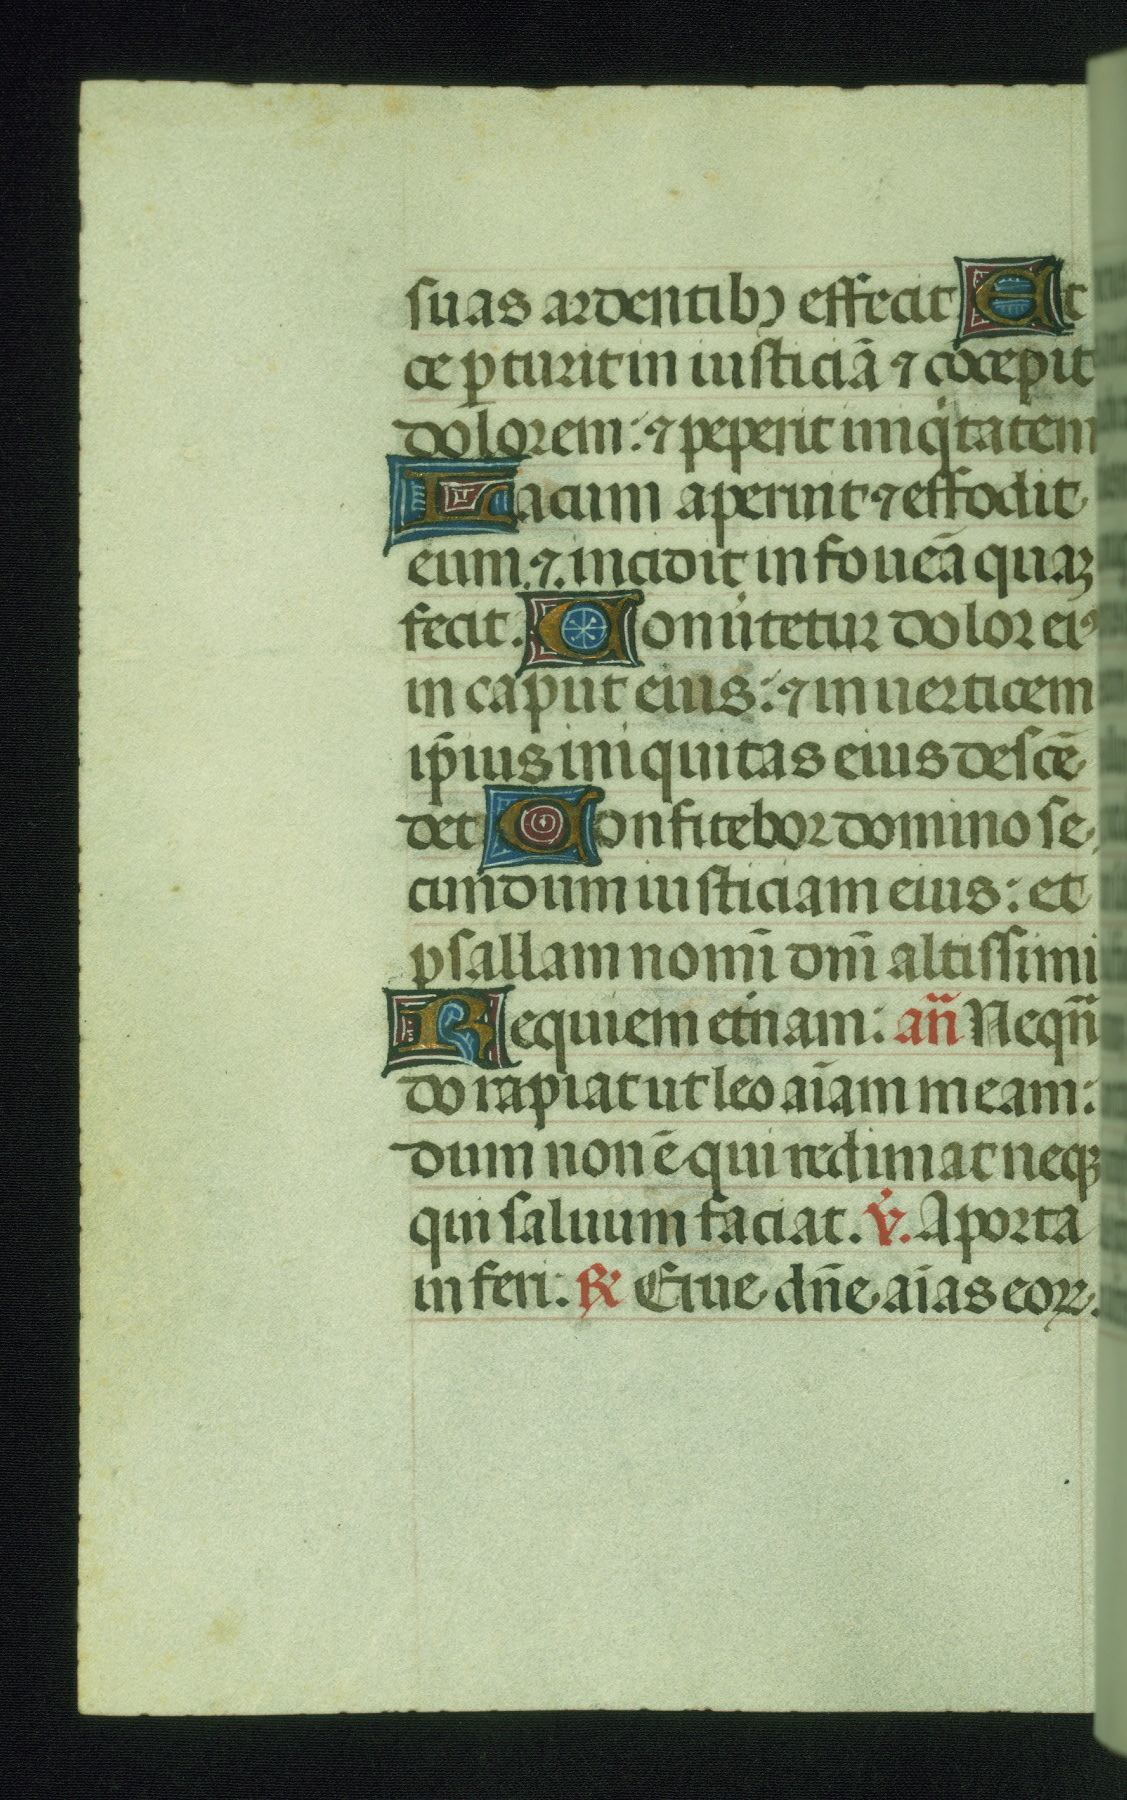 suas ardentibꝫ effecit Ec
ce ꝑturit in iusticiā ⁊ cōcepit
dolorem: ⁊ peperit iniq̇tatem
Lacum aperuit ⁊ effodit
eum ⁊ incidit in foueā quaꝫ
fecit. Conu̇tetur dolor eiꝰ
in caput eius: ⁊ in uerticem
ip̄ius iniquitas eius descē
det Confitebor domino se
cundum iusticiam eius: et
psallam nomı̄ dnı̄ altissimi
Requiem et̓nam: an̄ Neqūn
do rapiat ut leo aı̄am meam:
dum non ē qui redimat neqꝫ
qui saluum faciat. ℣. A porta
inferi: ℟ Erue dn̄e aı̄as eoꝝ.